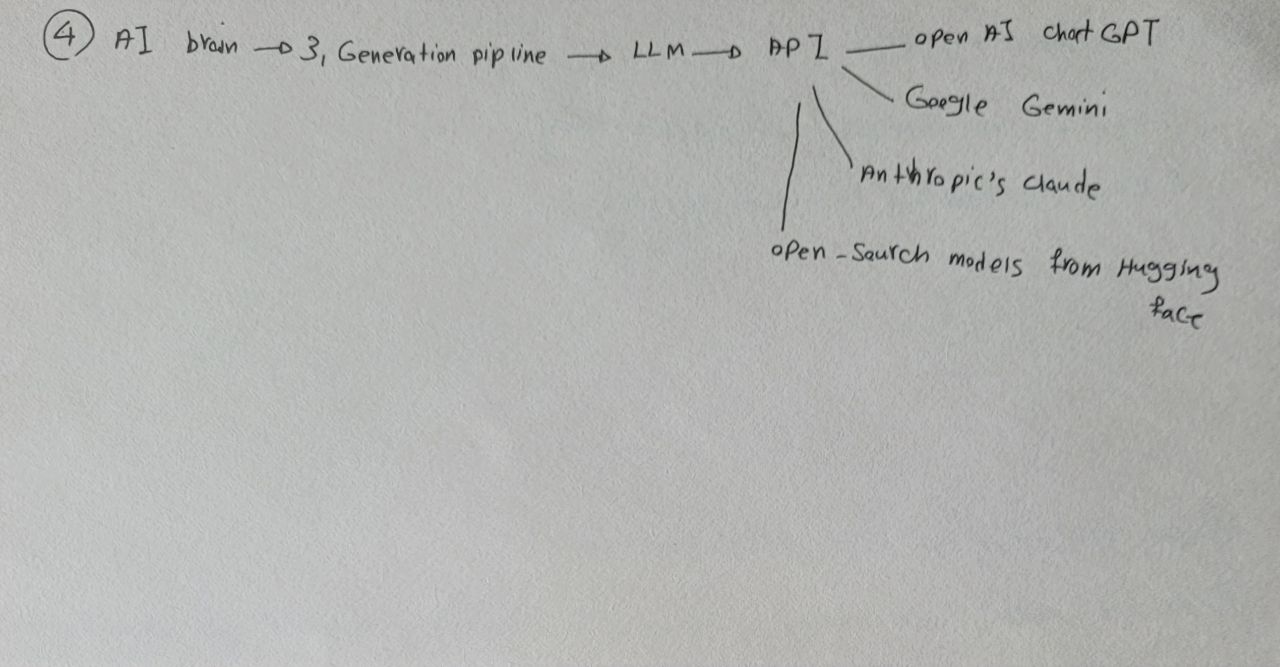 ④ AI brain → 3, Generation pipline → LLM → API — open AI chart GPT
Google Gemini
Anthropic's claude
open-Sourch models from Hugging
face